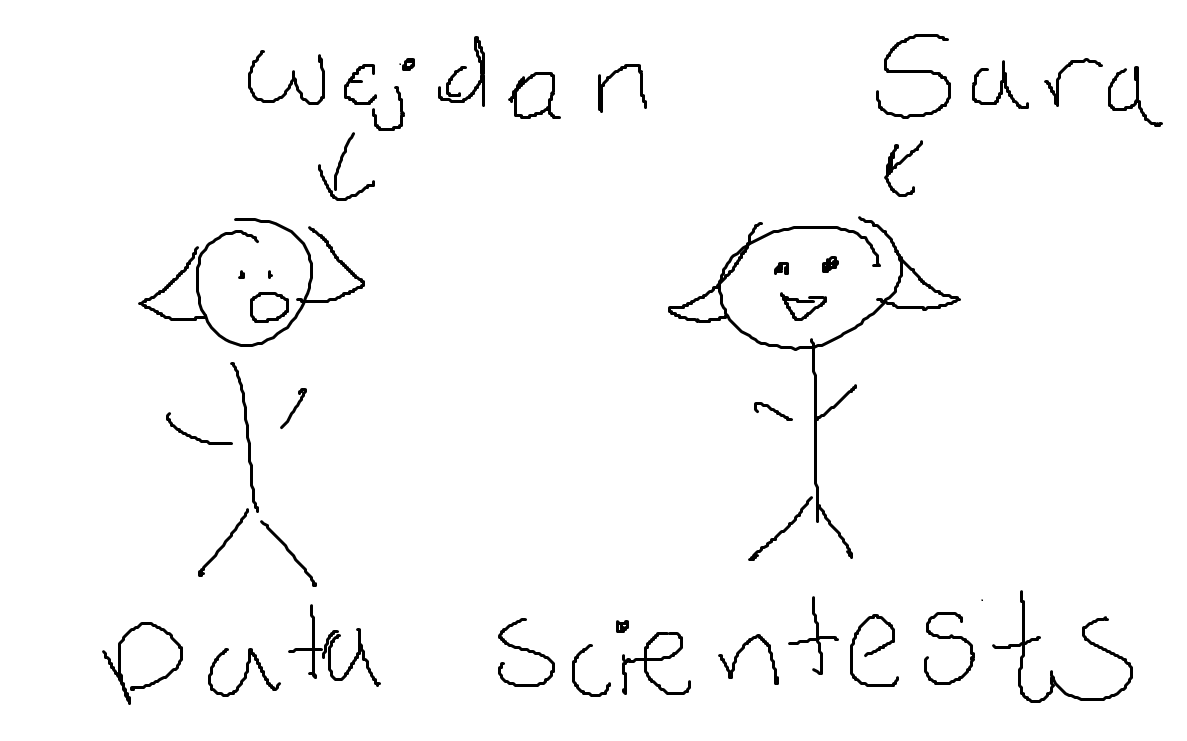 Wejdan Sara
Data scientests